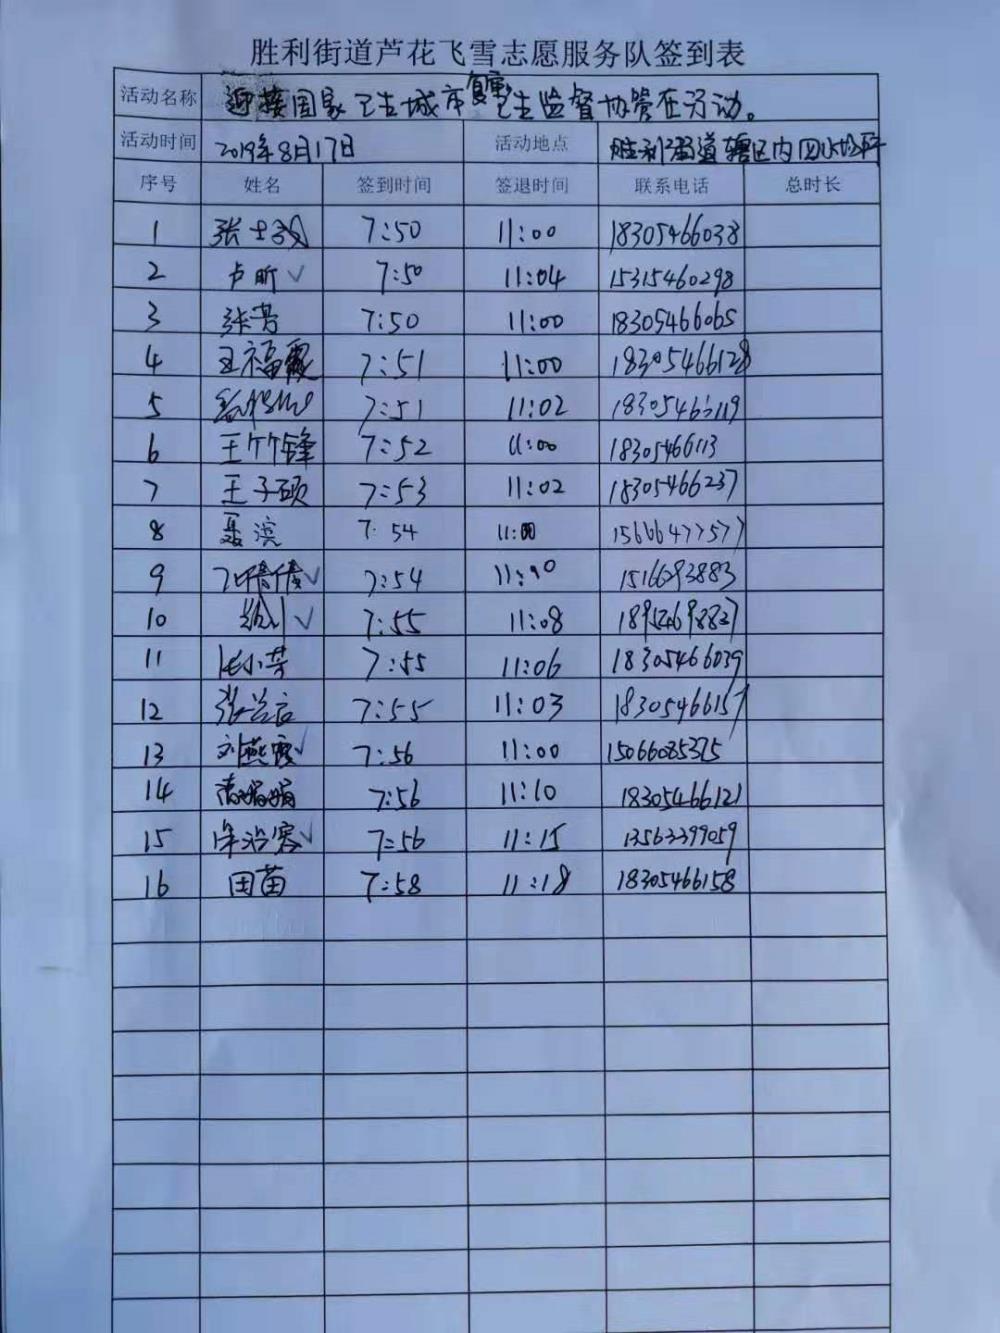 胜利街道芦花飞雪志愿服务队签到表
活动名称 迎接国家卫生城市复审卫生监督协管在行动。
活动时间 2019年8月17日 活动地点 胜利街道辖区内
序号 姓名 签到时间 签退时间 联系电话 总时长
1 7:50 11:00 18305466038
2 卢昕 ✓ 7:50 11:04 15315460298
3 张芳 7:50 11:00 18305466065
4 王福霞 7:51 11:00 18305466128
5 7:51 11:02 18305466119
6 王竹锋 7:52 11:00 18305466113
7 王子硕 7:53 11:02 18305466237
8 聂滨 7:54 11:00 15666477577
9 ✓ 7:54 15166293883
10 ✓ 7:55 11:08
11 张小芳 7:55 11:06 18305466039
12 7:55 11:03 18305466157
13 刘燕霞 ✓ 7:56 11:00 15066085375
14 7:56 11:10 18305466121
15 ✓ 7:56 11:15 13563399059
16 田苗 7:58 11:18 18305466158